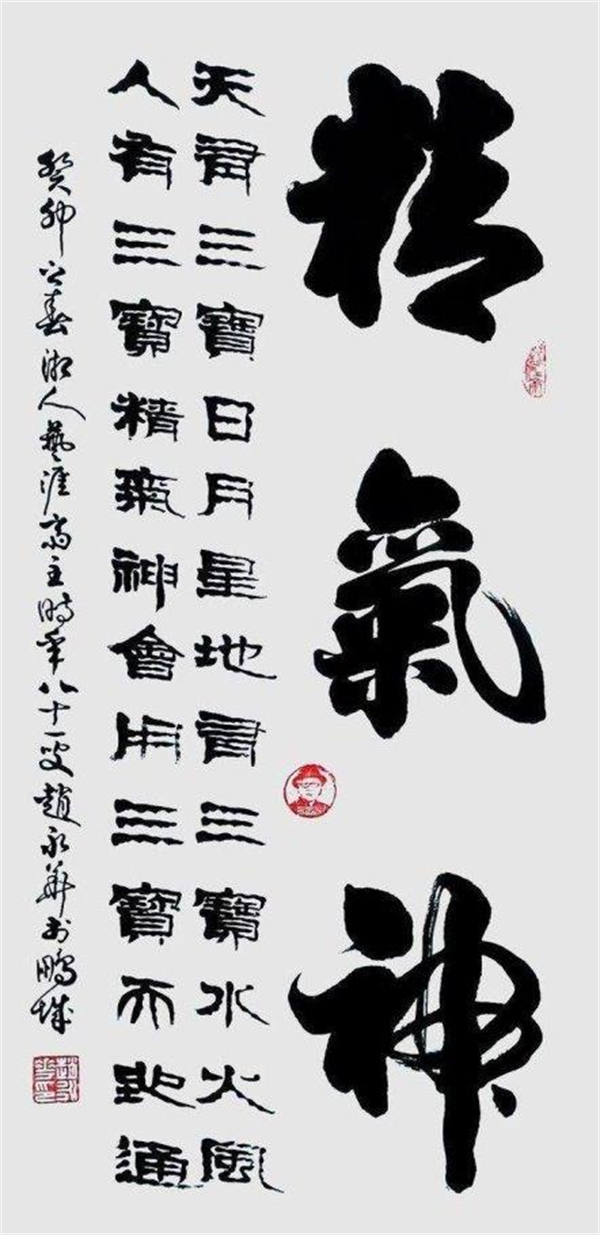 精氣神
天有三寶日月星地有三寶水火風
人有三寶精氣神會用三寶天地通
癸卯之春湘人藝涯齋主時年八十一叟趙永華书鵬城